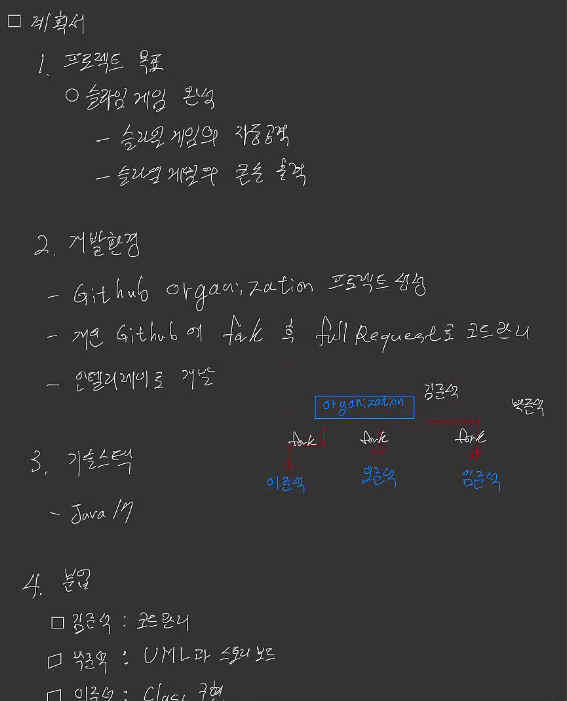 □ 계획서
1. 프로젝트 목표
○ 슬라임 게임 완성
- 슬라임 게임의 자동공격
- 슬라임 게임의 콘솔 출력
2. 개발환경
- Github organization 프로젝트 생성
- 개인 Github에 fork 후 full Request로 코드관리
- 인텔리제이로 개발
organization
김준석
박준석
fork
fork
fork
이준석
임준석
3. 기술스택
- Java 17
4. 분업
□ 김준석 : 코드관리
□ 박준석 : UML과 스토리보드
□ 이준석 : Class 구현